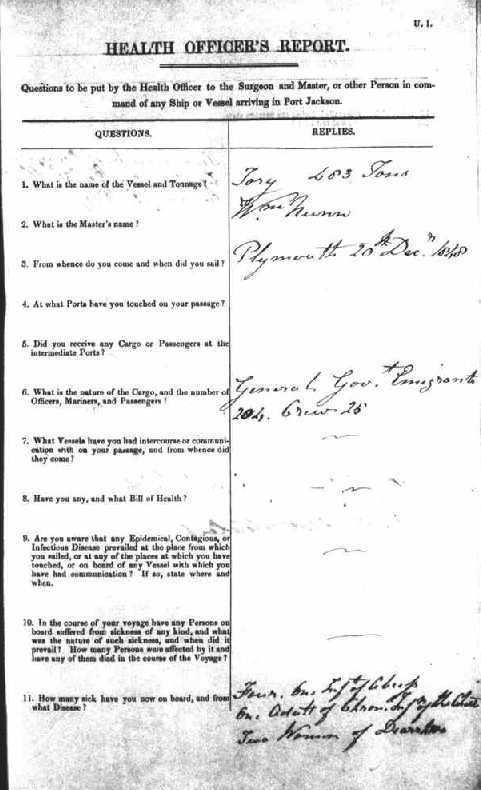 U. 1.
HEALTH OFFICER'S REPORT.
Questions to be put by the Health Officer to the Surgeon and Master, or other Person in com-
mand of any Ship or Vessel arriving in Port Jackson.
QUESTIONS.
REPLIES.
1. What is the name of the Vessel and Tonnage?
Tory 483 Tons
2. What is the Master's name?
Wm Nunn
3. From whence do you come and when did you sail?
Plymouth 20th Decr 1848
4. At what Ports have you touched on your passage?
5. Did you receive any Cargo or Passengers at the
intermediate Ports?
6. What is the nature of the Cargo, and the number of
Officers, Mariners, and Passengers?
General Govt Emigrants
204. Crew 25
7. What Vessels have you had intercourse or communi-
cation with on your passage, and from whence did
they come?
8. Have you any, and what Bill of Health?
9. Are you aware that any Epidemical, Contagious, or
Infectious Disease prevailed at the place from which
you sailed, or at any of the places at which you have
touched, or on board of any Vessel with which you
have had communication? If so, state where and
when.
10. In the course of your voyage have any Persons on
board suffered from sickness of any kind, and what
was the nature of such sickness, and when did it
prevail? How many Persons were affected by it and
have any of them died in the course of the Voyage?
11. How many sick have you now on board, and from
what Disease?
Four. One Inft of
One Adult of Chron.
Two Women of Diarrhœa